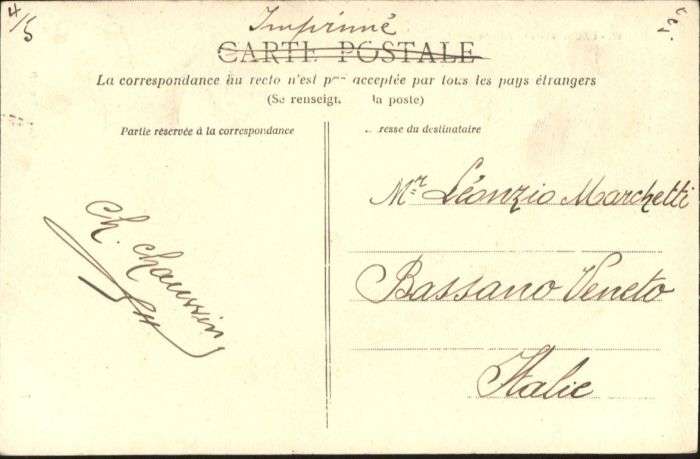 4/5
Imprimé
CARTE POSTALE
La correspondance au recto n'est pas acceptée par tous les pays étrangers
(Se renseigner à la poste)
Partie réservée à la correspondance
Ch. Chauvin
Adresse du destinataire
Mr Léonzio Marchetti
Bassano Veneto
Italie